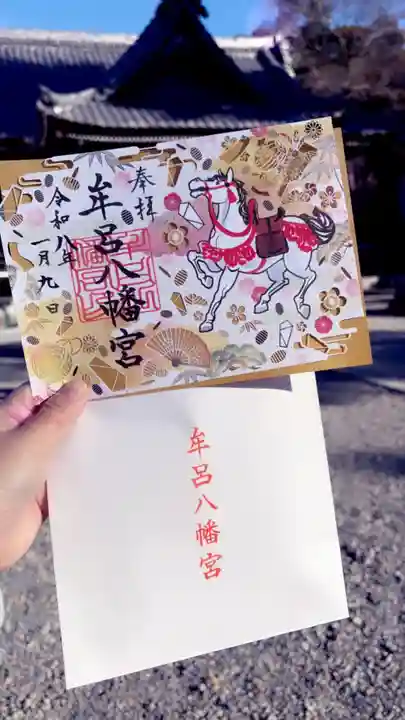 奉拝
牟呂八幡宮
令和八年
一月九日
牟呂八幡宮